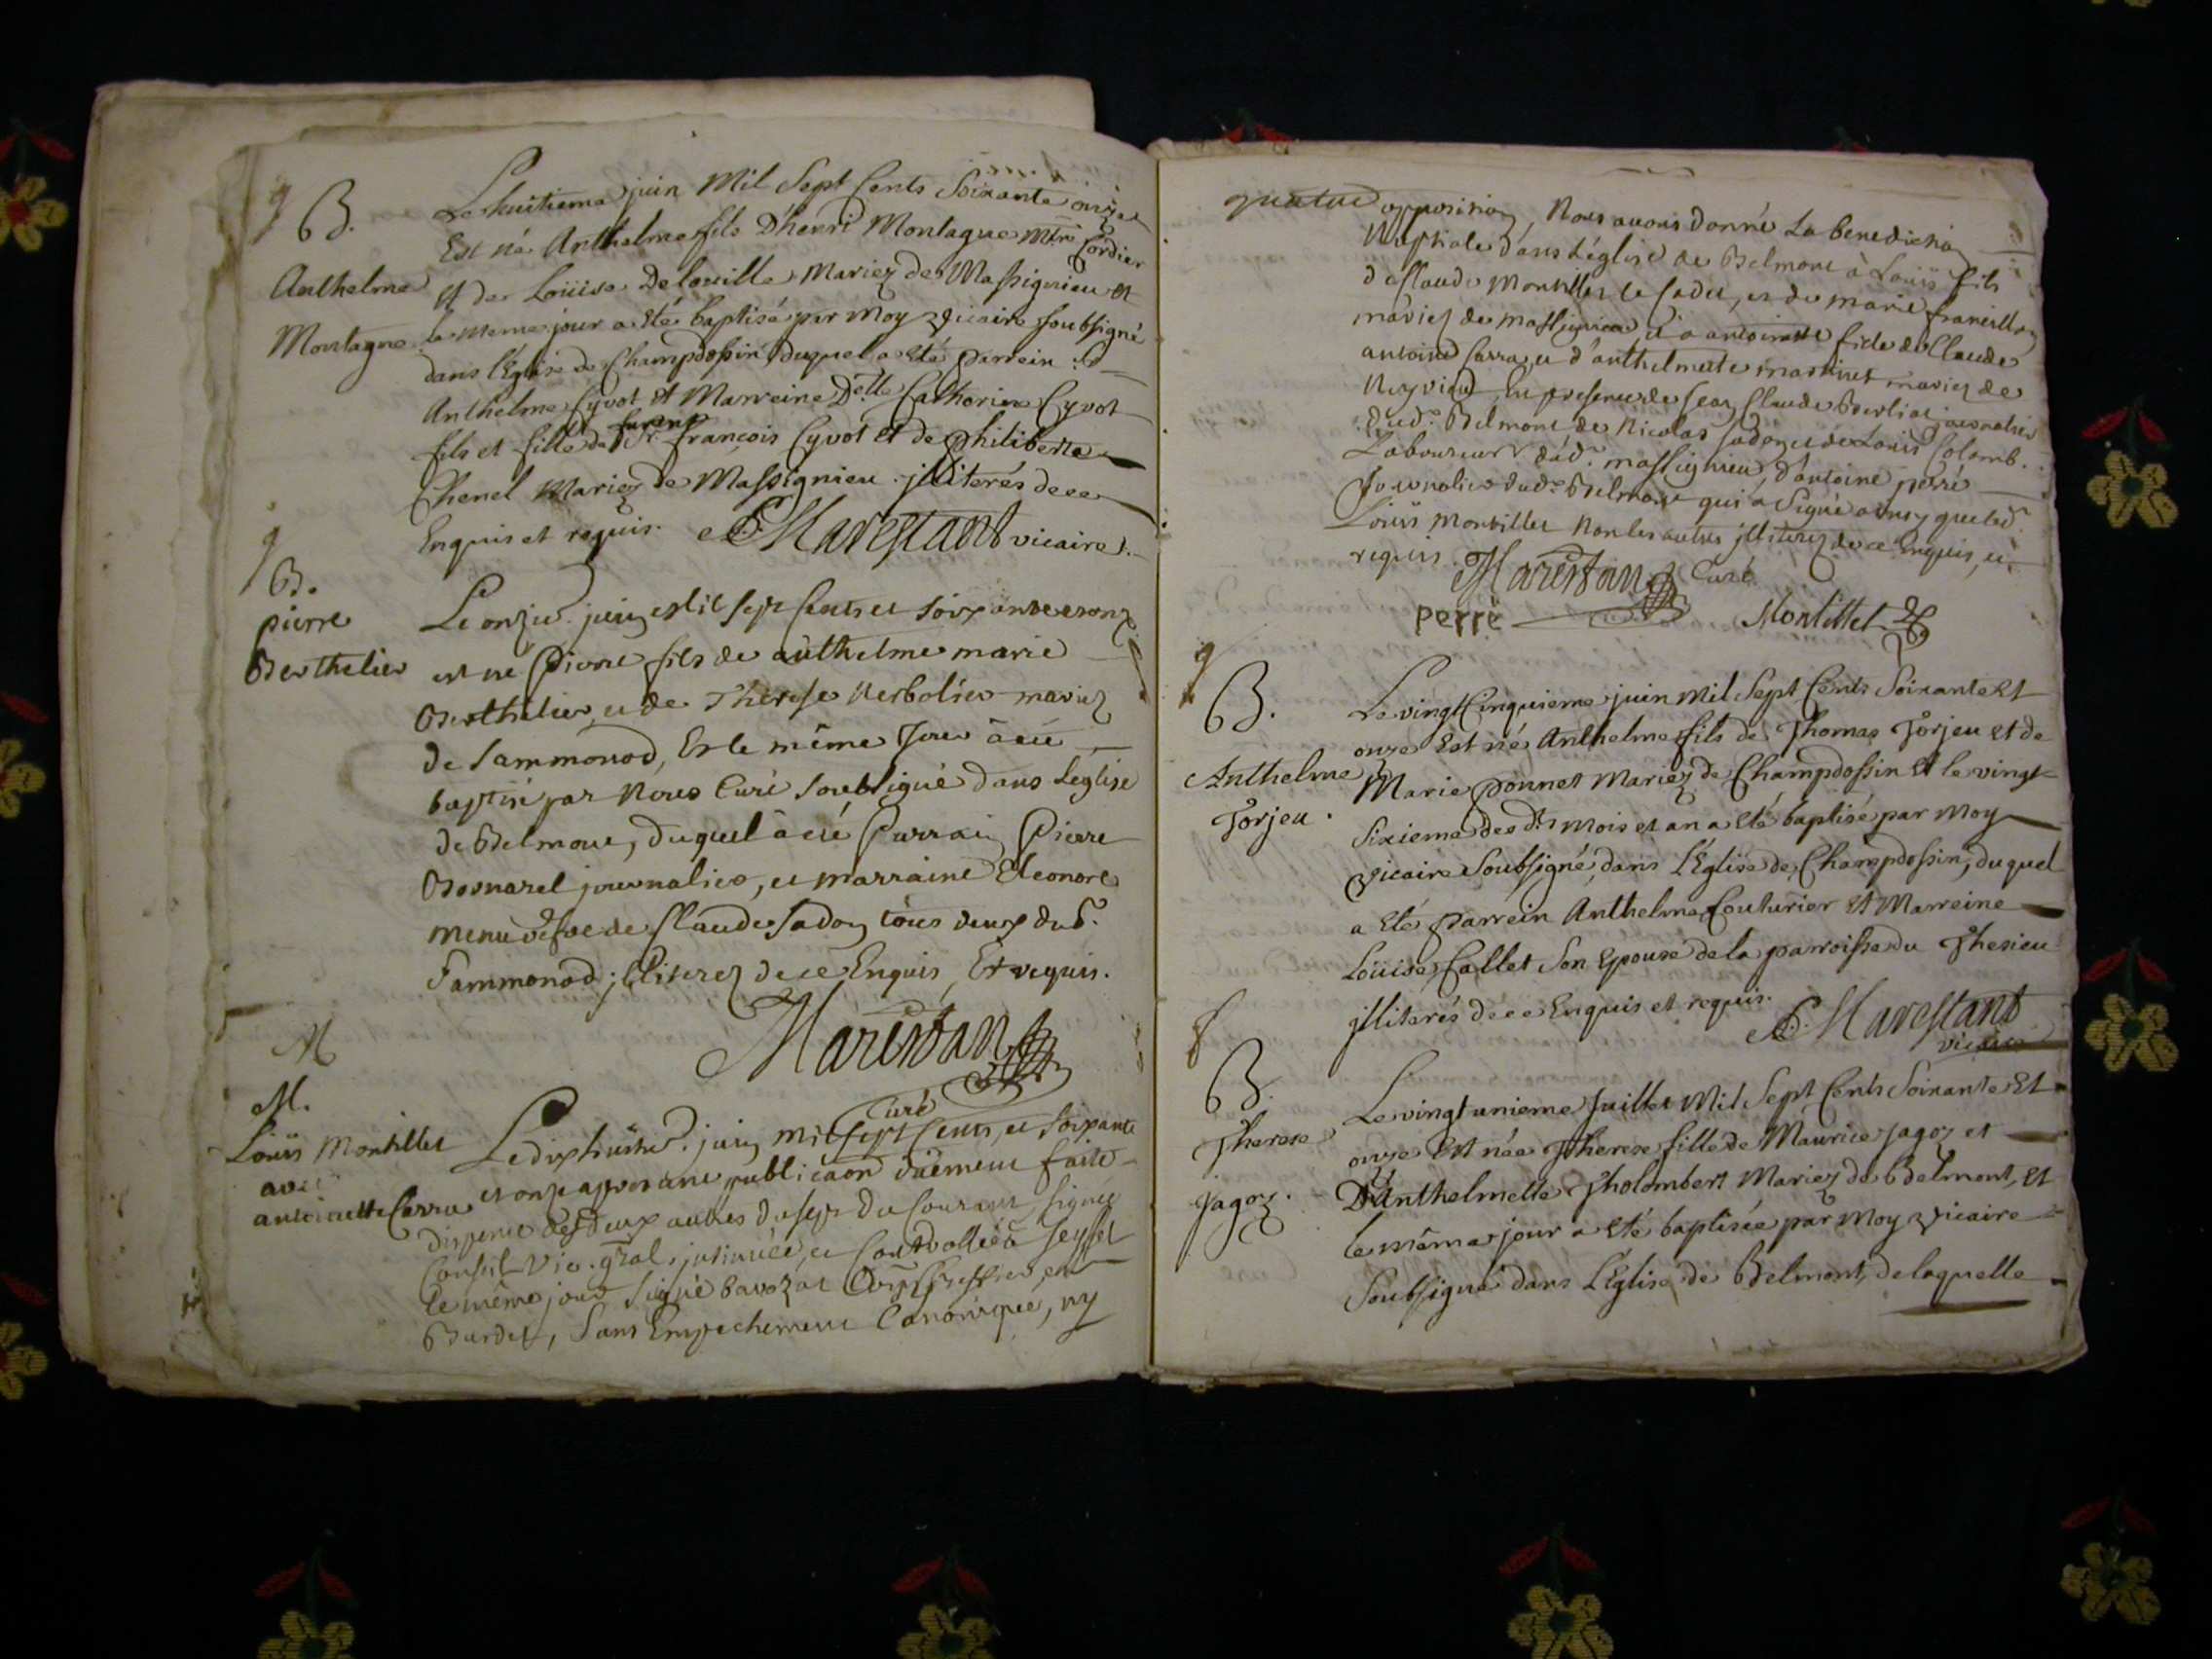 B.
Anthelme
Montagne
Le huitieme juin Mil Sept Cents Soixante onze
Est né Anthelme fils D'henri Montagne Mtre Cordier
et de Loüise Delouille Mariez de Massignieu et
le meme jour a eté baptisé par Moy vicaire soubsigné
dans l'Eglise de Champdossin, duquel a eté parrein Sr
Anthelme Cyvot et Marreine Delle Catherine Cyvot
fils et fille de furent Sr. françois Cyvot et de philiberte
Chenel Mariez de Massignieu. jlliterés de ce
Enquis et requis. Marestant vicaire.
B.
pierre
Berthelier
Le onzie. juin Mil sept Cents et soixante et onze
est né Pierre fils de anthelme marie
Berthelier, et de Therese Verbolier mariez
de Sammonod, Et le même Jour à eté
baptisé par Nous Curé soubsigné dans Leglise
de Belmont, duquel à eté Parrain Pierre
Bornarel journalier, et marraine Eleonore
menu vefve de Claude Jadon tous deux dud.
Sammonod; jlliterez de ce Enquis, Et requis.
Marestan
Curé
M
M.
Loüis Montillet
avec
antoinette Carra
Le dix huitie. juin mil sept Cents, et soixante
et onze apres une publicaon düement faite
dispence des deux autres du sept du Courant, signée
Consul Vic. gral, jnsinuée, et Controllée à Seyssel
le même jour signé bavozat Commis Greffier, et
Burdet, Sans Empechement Canonique, ny
opposition, Nous avons donné La benediction
Nuptiale dans L'église de Belmont à Loüis fils
de Claude Montillet le Cadet, et de marie francillon
mariez de massignieu et à antoinette fille de Claude
antoine Carra, et d'anthelmette martinet mariez de
Veyrieu, En presence de Jean Claude Berlioz journalier
dud. Belmont de Nicolas Jadon, et de Louis Colomb.
Laboureur dud. massignieu, d'antoine perré
Journalier dud. Belmont qui a Signé avec que led.
Loüis Montillet Non les autres jlliterez de ce Enquis, et
requis. Marestan Curé
perrë Montillet
B.
Anthelme
Forjeu.
Le vingt Cinquieme juin Mil Sept Cents Soixante Et
onze Est né Anthelme fils de Thomas Forjeu et de
Marie ponnet Mariez de Champdossin et le vingt
Sixieme des dts mois et an a eté baptisé par Moy
vicaire Soubsigné, dans l'Eglise de Champdossin, duquel
a eté parrein Anthelme Couturier et Marreine
Loüise Callet Son Epouse de la parroisse du Thesieu
jlliterés de ce Enquis et requis.
Marestant
vicaire
B.
Therese
jagoz.
Le vingt unieme Juillet Mil Sept Cents Soixante Et
onze Est née Therese fille de Maurice jagoz et
D'Anthelmette Tholombert Mariez de Belmont, et
le même jour a eté baptisée par Moy vicaire
Soubsigné dans l'Eglise de Belmont, de laquelle